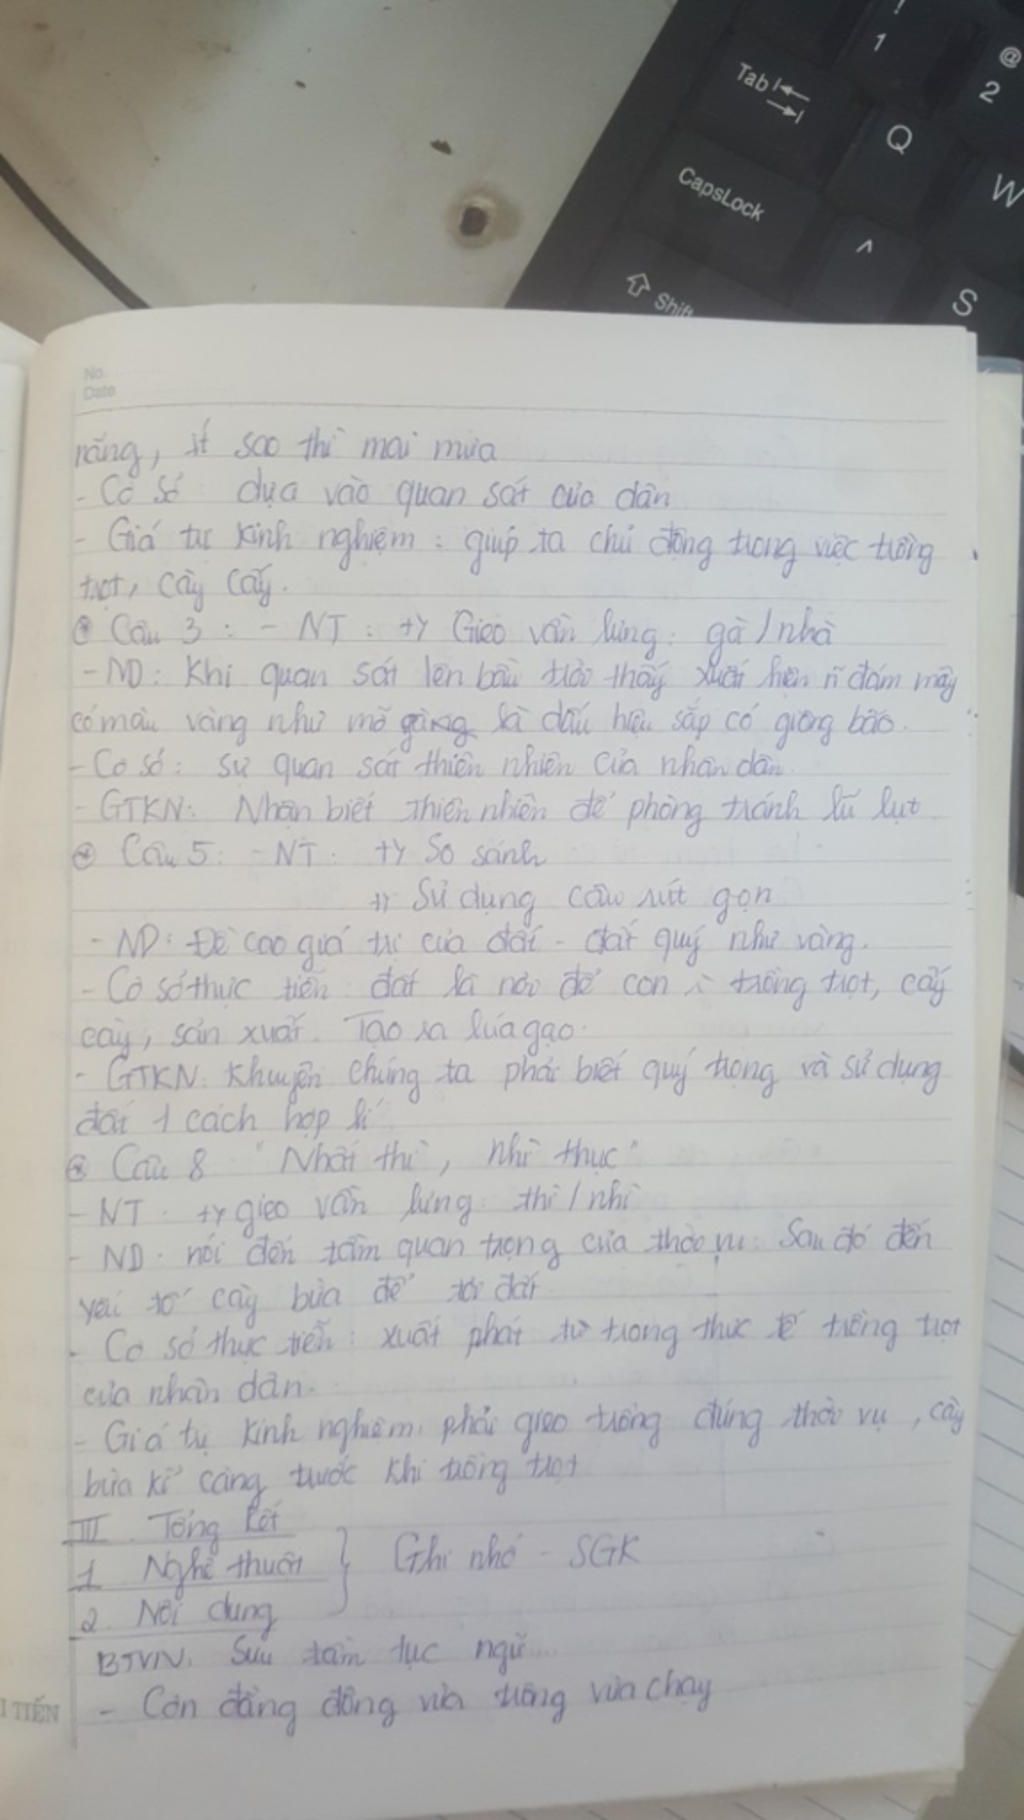 !
1
@
2
Tab
Q
W
CapsLock
^
S
Shift
No.
Date
nắng, ít sao thì mai mưa
- Cơ sở : dựa vào quan sát của dân
- Giá trị kinh nghiệm : giúp ta chủ động trong việc trồng
trọt, cày cấy.
Câu 3 : - NT : + Gieo vần lưng : gà / nhà
- ND : Khi quan sát lên bầu trời thấy xuất hiện đám mây
có màu vàng như mỡ gà là dấu hiệu sắp có giông bão.
- Cơ sở : sự quan sát thiên nhiên của nhân dân
- GTKN : Nhận biết thiên nhiên để phòng tránh lũ lụt
Câu 5 : - NT : + So sánh
+ Sử dụng câu rút gọn
- ND : Đề cao giá trị của đất - đất quý như vàng.
- Cơ sở thực tiễn : đất là nơi để con trồng trọt, cấy
cày, sản xuất. Tạo ra lúa gạo.
- GTKN : Khuyên chúng ta phải biết quý trọng và sử dụng
đất 1 cách hợp lí
Câu 8 "Nhất thì, nhì thục"
- NT : + gieo vần lưng : thì / nhì
- ND : nói đến tầm quan trọng của thời vụ. Sau đó đến
yếu tố cày bừa để tơi đất
- Cơ sở thực tiễn : xuất phát từ trong thực tế trồng trọt
của nhân dân.
- Giá trị kinh nghiệm : phải gieo trồng đúng thời vụ, cày
bừa kĩ càng trước khi trồng trọt
III Tổng kết
1 Nghệ thuật } Ghi nhớ - SGK
2. Nội dung
BTVN : Sưu tầm tục ngữ...
- Cơn đằng đông vừa trông vừa chạy
I TIẾN